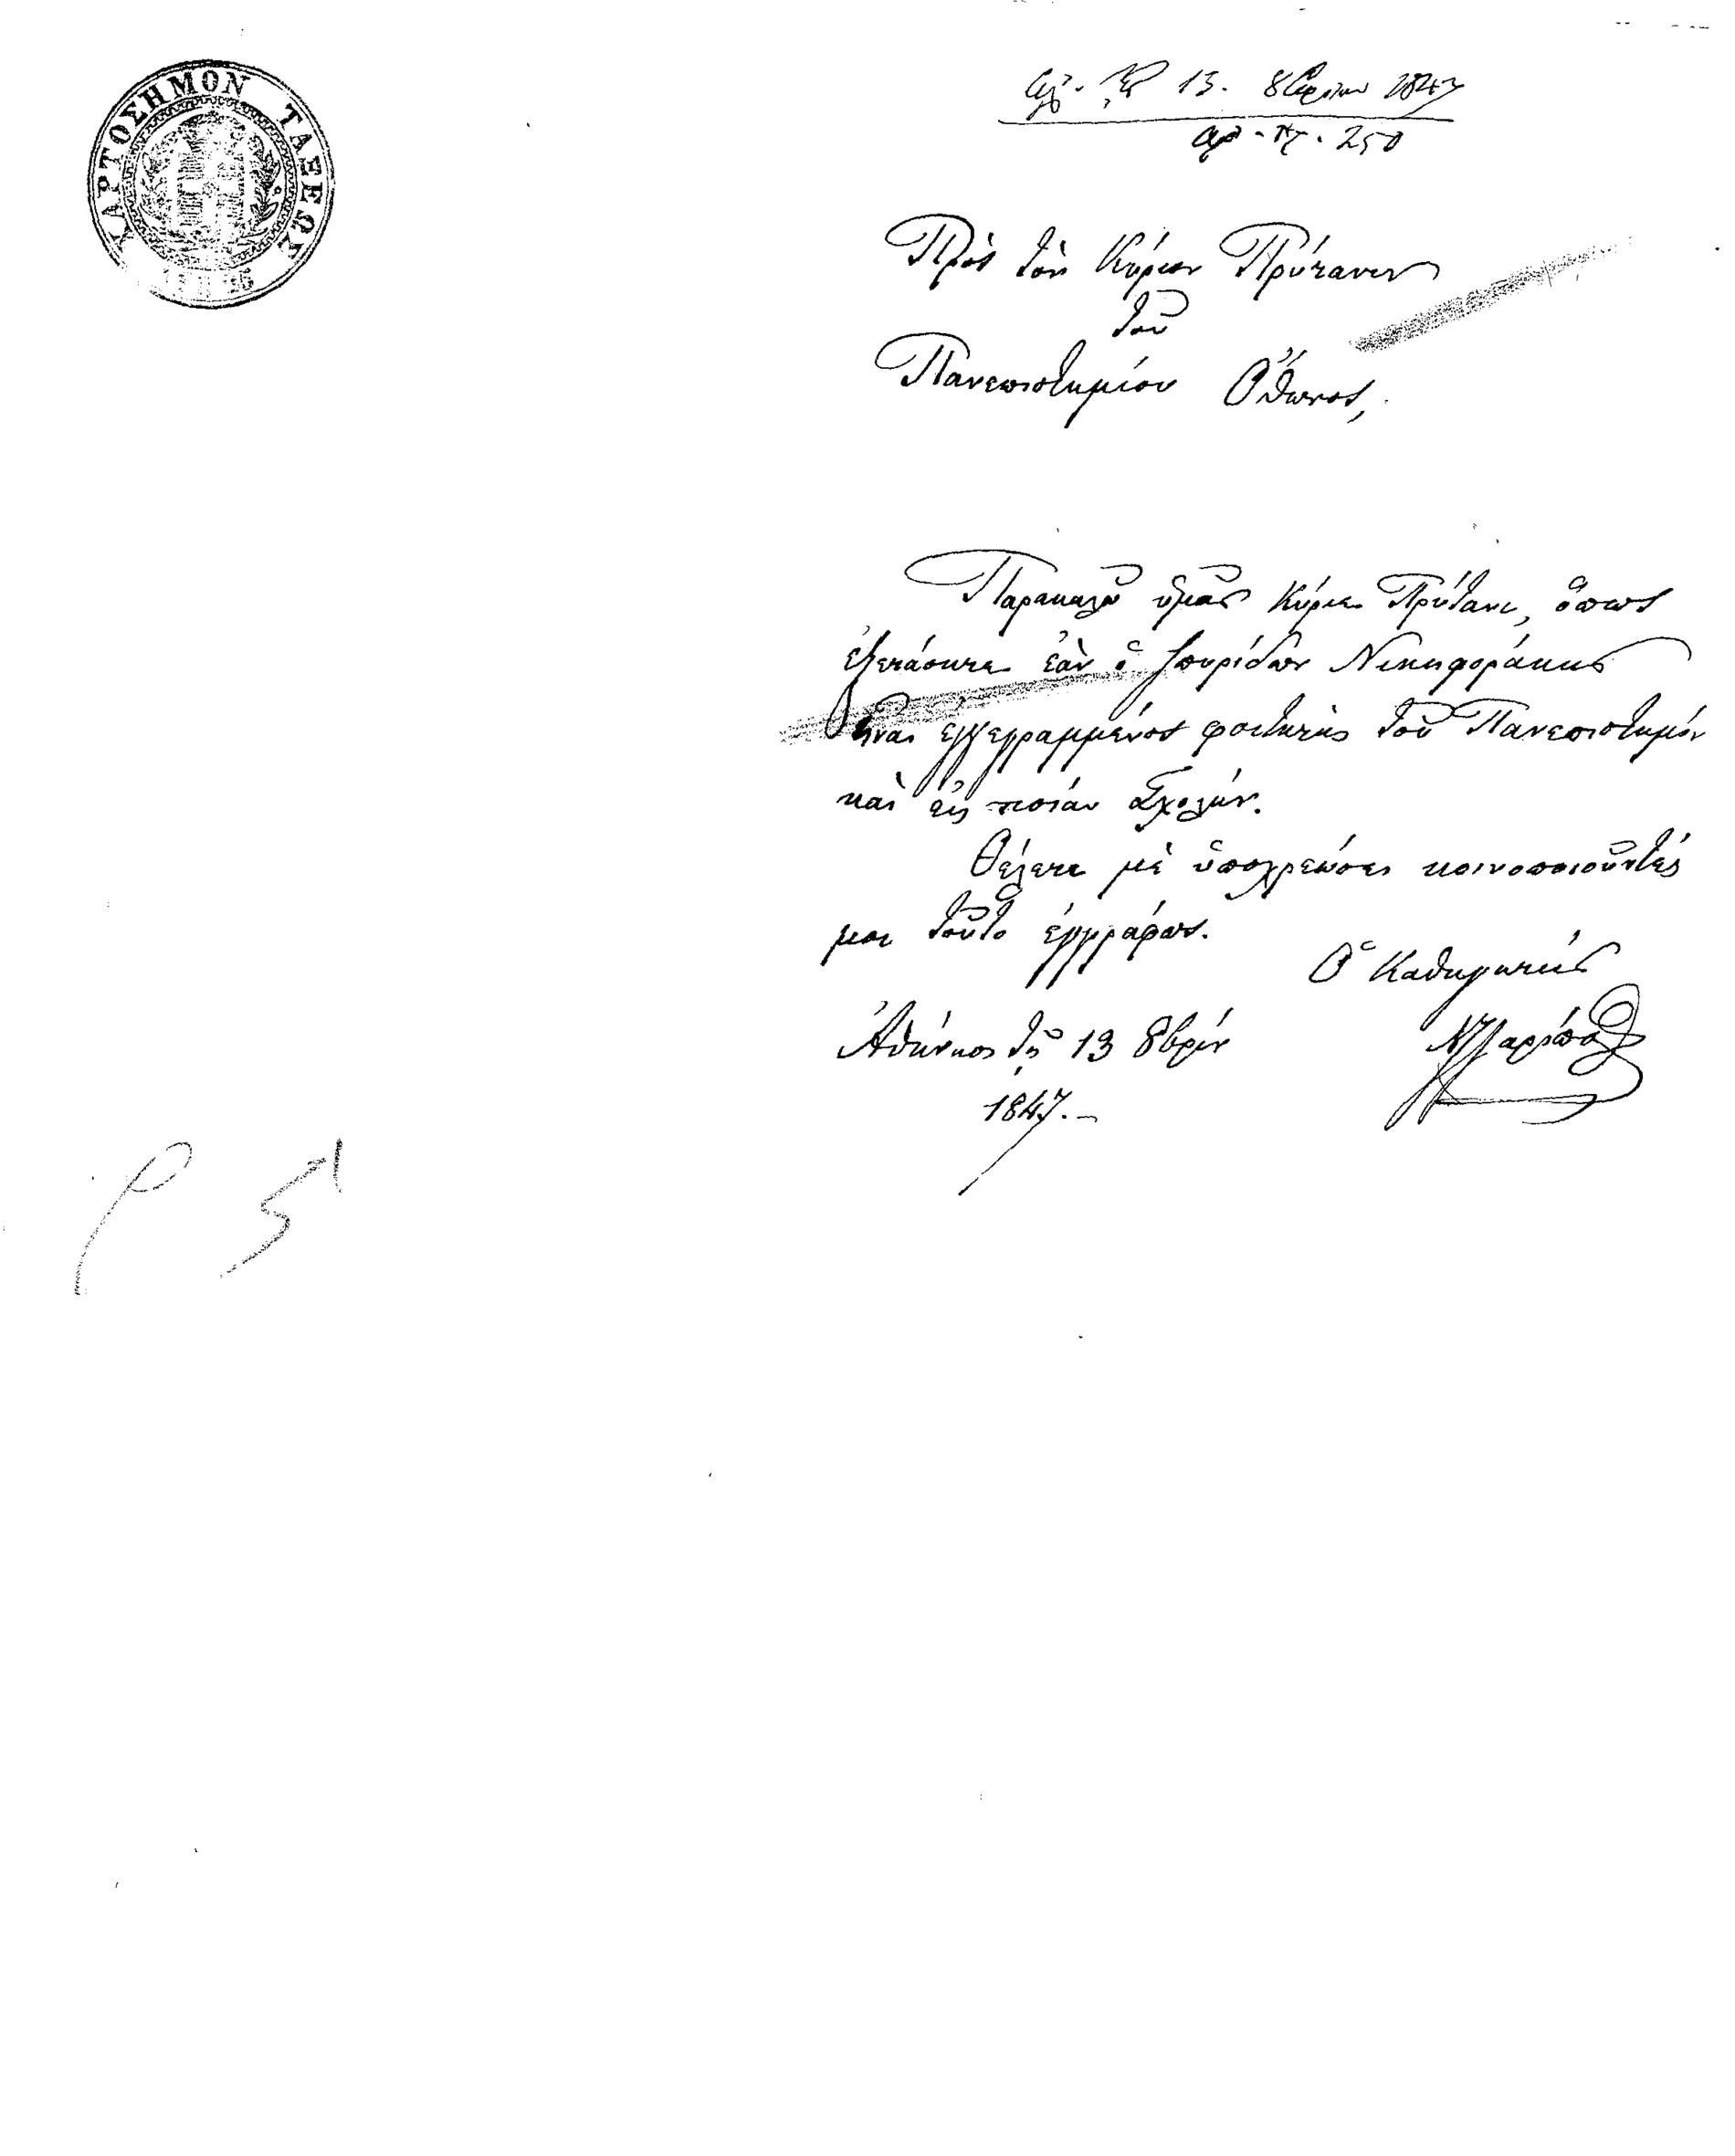 ΧΑΡΤΟΣΗΜΟΝ ΤΑΞΕΩΣ
13. 8βρίου 1847
ἀρ. π. 250
Πρὸς τὸν Κύριον Πρύτανιν
τοῦ
Πανεπιστημίου Ὄθωνος,
Παρακαλῶ ὑμᾶς Κύριε Πρύτανι, ὅπως
ἐξετάσητε ἐὰν ὁ Σπυρίδων Νικηφοράκης
ἦναι ἐγγεγραμμένος φοιτητὴς τοῦ Πανεπιστημίου
καὶ εἰς ποίαν Σχολήν.
Θέλετε μὲ ὑποχρεώσει κοινοποιοῦντές
μοι τοῦτο ἐγγράφως.
Ὁ Καθηγητής
Ἀθήνησι τῇ 13 8βρίου
1847.-